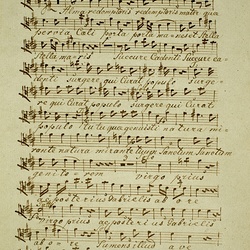 Alma redemptoris redemptoris mater quæ
pervia Cæli porta porta manes et Stella
Stella maris Succure Cadenti Succure ca-
denti surgere qui Curat populo surge-
re qui Curat populo surgere qui Curat
populo tu tuquægenuisti natura mi-
rante natura mirante tuum Sanctum Sanctum
genitorem virgo prius
ac posterius Gabrielis ab ore
virgo prius ac posterius Gabrielis
ab ore Sumens illud ave